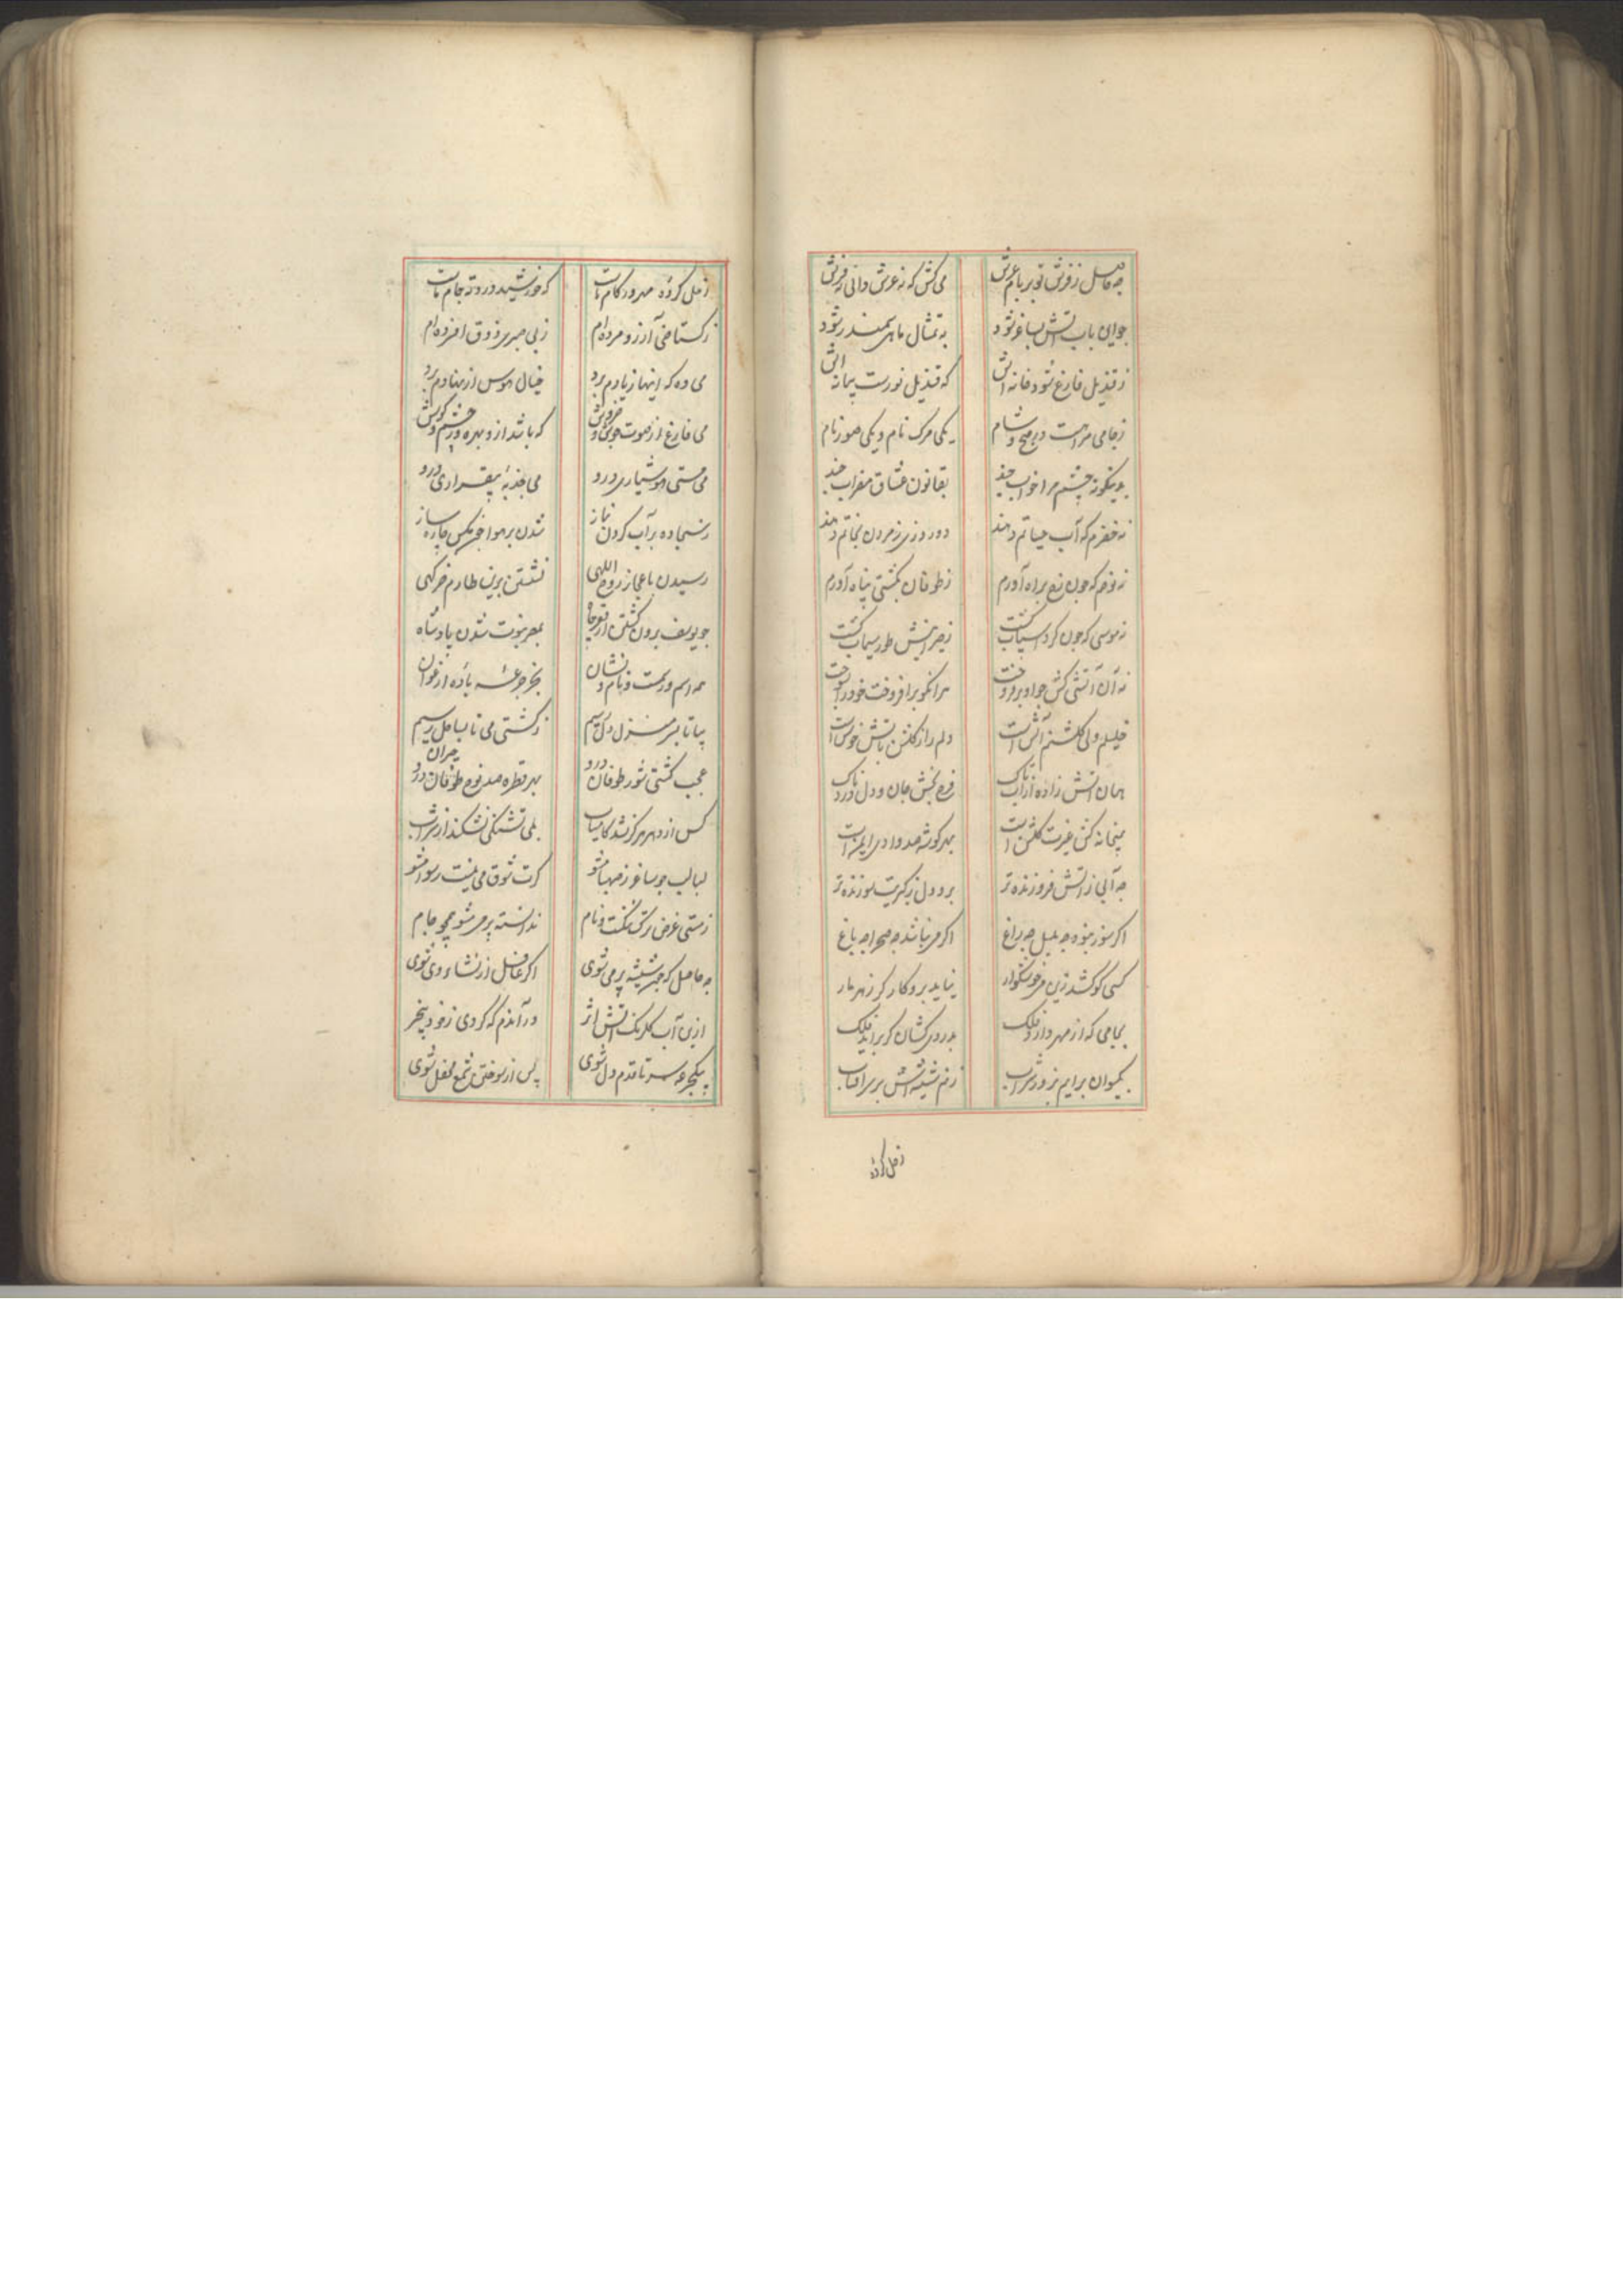 چه حاصل ز فرش تو بر بام عرش
می کش که نه عرش دانی نه فرش
چو این باب آتش بساغر شود
به تمثال ماهی سمندر شود
ز قندیل فارغ شود خانه اش
که قندیل نورست پیمانه اش
ز جامی مراهست در صبح و شام
یکی مرک نام و یکی صور نام
بدینکونه چشم مرا خواب چند
بقانون عشاق مضراب چند
نه خضرم که آب حیاتم دهند
دو روزی ز مردن نجاتم دهند
نه نوحم که چون رخ براه آورم
ز طوفان بکشتی پناه آورم
نه موسی که چون کرد سیماب کشت
ز حیرانیش طور سیماب کشت
نه آن آتشی کش چو او برفروخت
هر انکو برافروخت خود را بسوخت
خلیلم ولی کلشنم آتش است
دلم را ز کلشن باتش خوش است
همان آتش زاده از آب تاک
فرح بخش جان و دل دردناک
میخانه کش غیرت کلشن است
بهر کوشه صد وادی ایمن است
چه آبی ز آتش فروزنده تر
برو دل ز کبریت سوزنده تر
اکر سوز نبود چه بلبل چه زاغ
اکر می نباشد چه صحرا چه باغ
کسی کو کشد زین می خوشکوار
نیاید برو کارکر زهر مار
بجامی که از مهر دارد فلک
بدردی کشان کر براید فلک
بکیوان برایم بزور شراب
زنم شیشه اش بر سر افتاب
زمل کرده
زمل کرده مهر در کام ماست
که خورشید درد ته جام ماست
ز کستاخی آرزو مرده ام
ز بی صبری ذوق افسرده ام
می ده که اینها ز یادم برد
خیال هوس از نهادم برد
می فارغ از صوت جوش و خروش
که باشد از و بهره ور چشم و کوش
می مستی هوشیاری درو
می جذبه بیقراری درو
نه سجاده بر آب کردن نماز
شدن بر هوا چون مکس چاره ساز
رسیدن باعجاز روح اللهی
نشستن برین طارم خرکهی
چو یوسف برون کشتن از قعر چاه
بمصر نبوت شدن پادشاه
همه اسم و رسمت و نام و نشان
بجز جرعه باده ارغوان
بیا تا بسر منزل دل رسیم
ز کشتی می تا بساحل رسیم
عجب کشتی شور طوفان درو
بهر قطره صد نوح حیران درو
کس از دهر هرکز نشد کامیاب
بلی تشنکی نشکند از سراب
لبالب چو ساغر ز صهبا مشو
کرت شوق می نیست رسوا مشو
ز مستی غرض ترک ننکست و نام
ندانسته پر می مشو همچو جام
چه حاصل که چون شیشه پر می شوی
اکر غافل از نشاء وی شوی
ازین آب کلرنک آتش اثر
در آندم که کردی ز خود بیخبر
بیکجرعه سر تا قدم دل شوی
پس از سوختن شمع محفل شوی